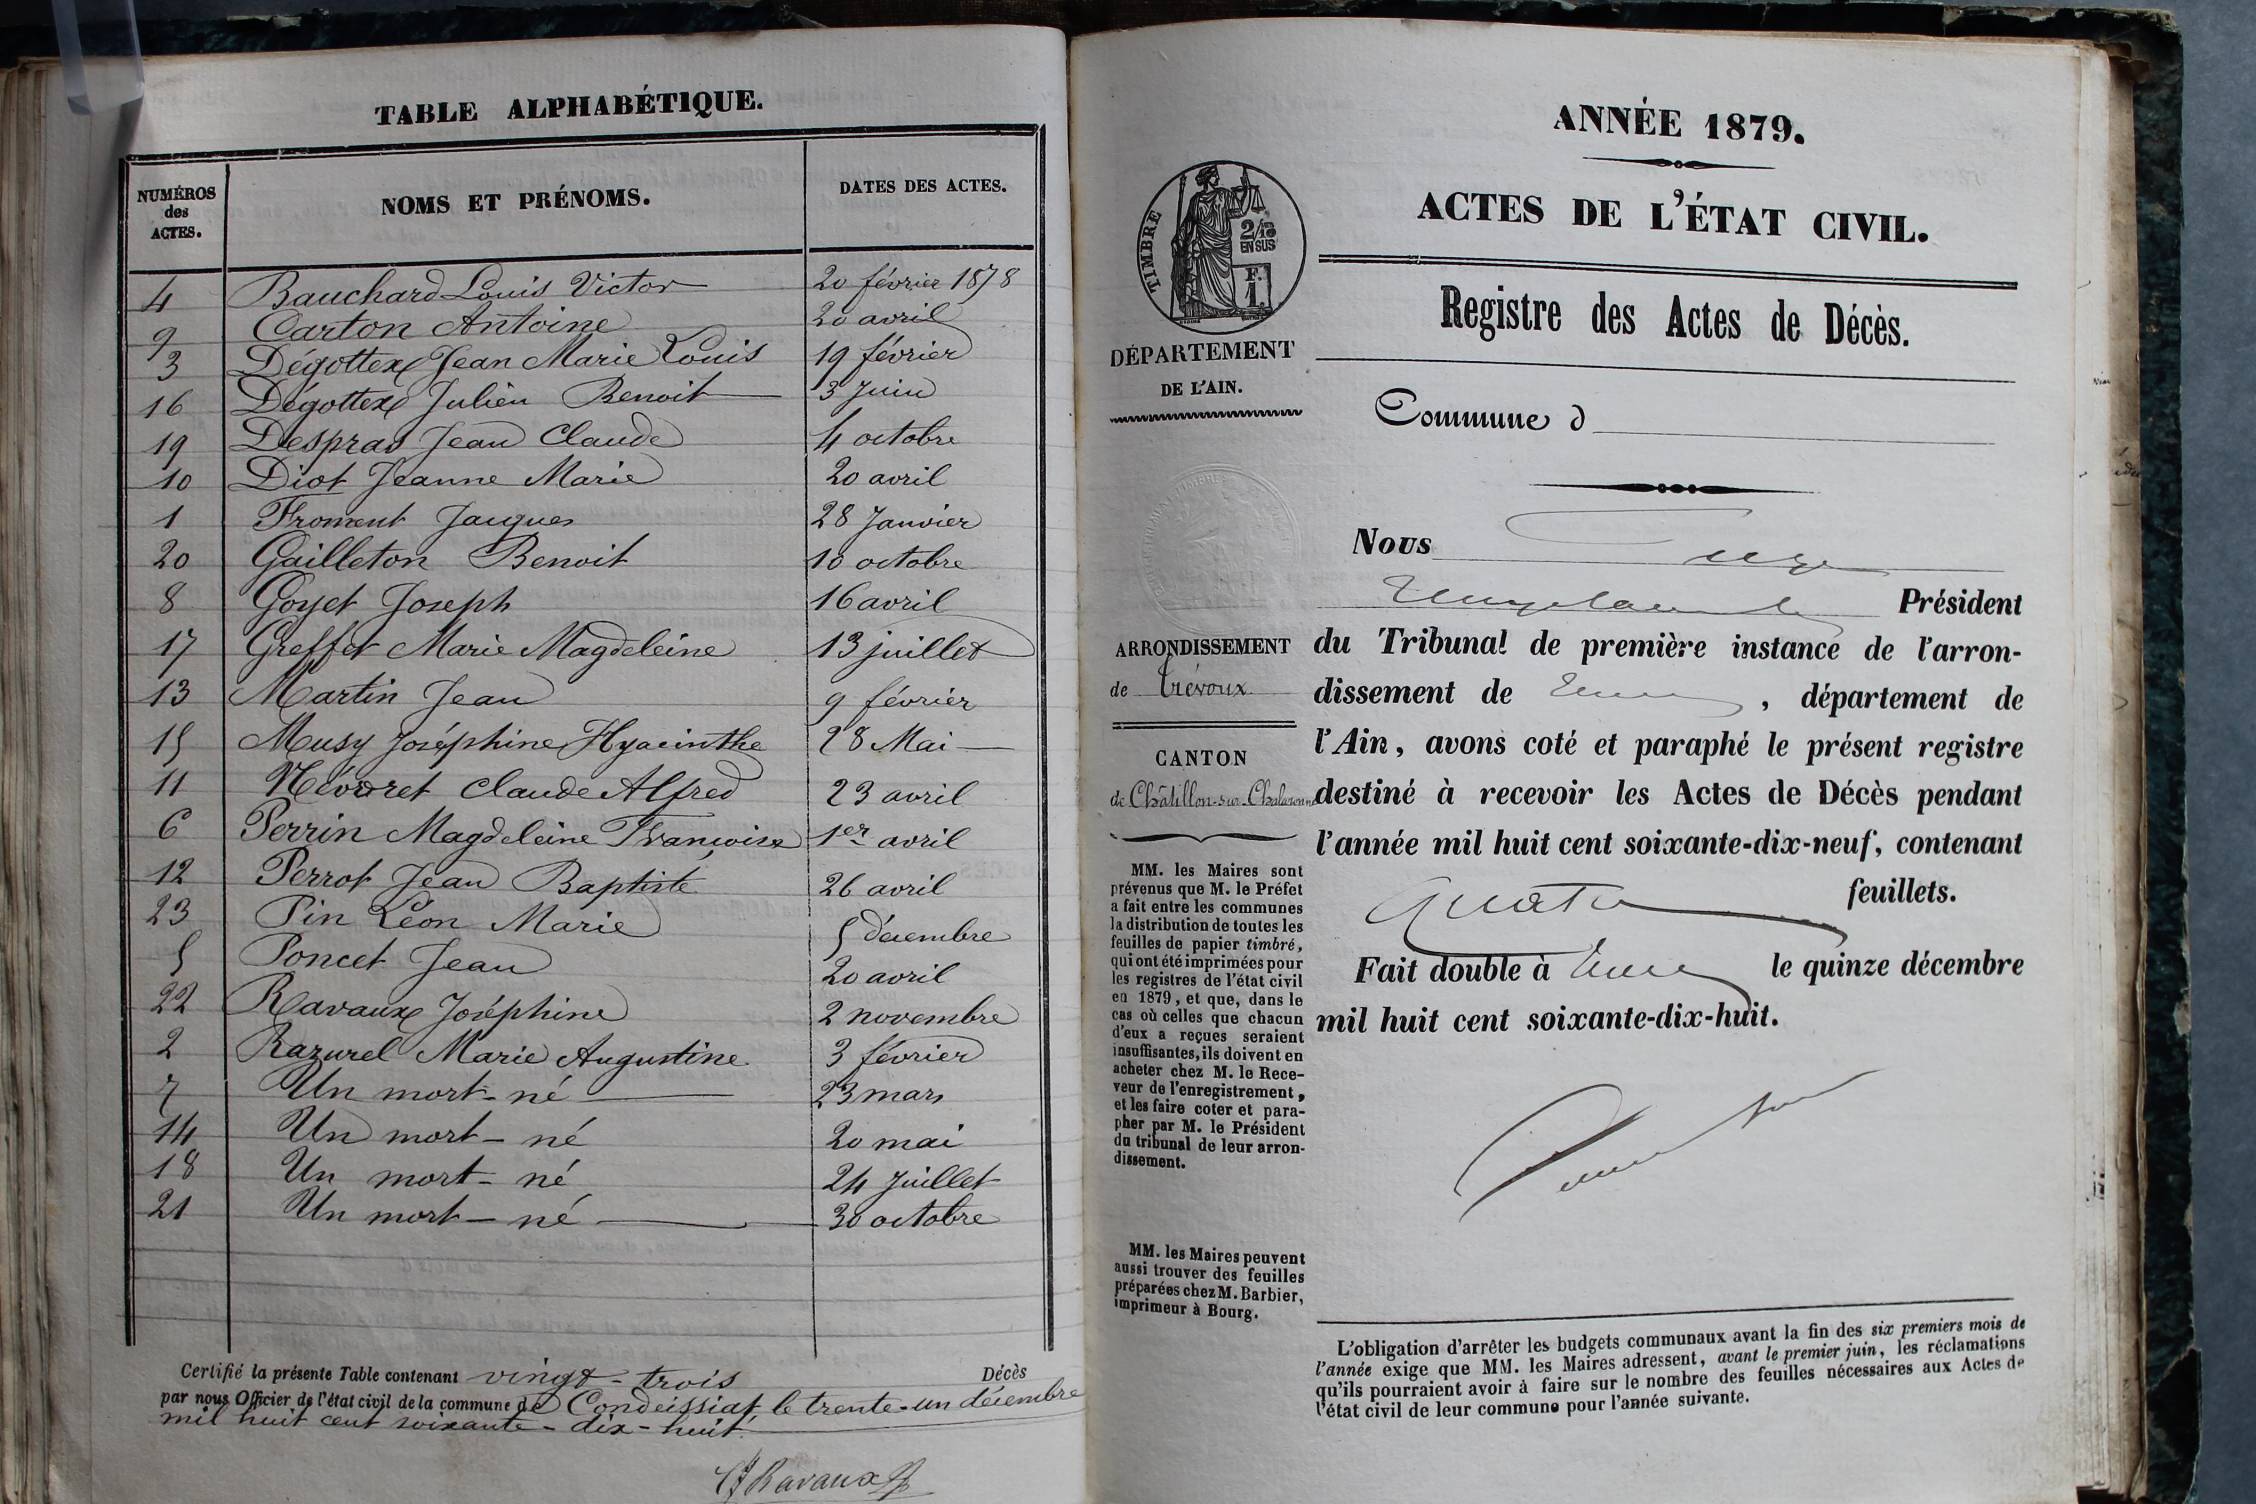 TABLE ALPHABÉTIQUE.
NUMÉROS des ACTES. NOMS ET PRÉNOMS. DATES DES ACTES.
4 Bauchard Louis Victor 20 février 1878
9 Carton Antoine 20 avril
3 Dégottex Jean Marie Louis 19 février
16 Dégottex Julien Benoit 3 Juin
19 Despras Jean Claude 4 octobre
10 Diot Jeanne Marie 20 avril
1 Froment Jacques 28 Janvier
20 Gailleton Benoit 10 octobre
8 Goyet Joseph 16 avril
17 Greffet Marie Magdeleine 13 juillet
13 Martin Jean 9 février
15 Musy Joséphine Hyacinthe 28 Mai
11 Névoret Claude Alfred 23 avril
6 Perrin Magdeleine Françoise 1er avril
12 Perrot Jean Baptiste 26 avril
23 Pin Léon Marie 5 décembre
5 Poncet Jean 20 avril
22 Ravaux Joséphine 2 novembre
2 Razurel Marie Augustine 3 février
7 Un mort-né 23 mars
14 Un mort-né 20 mai
18 Un mort-né 24 Juillet
21 Un mort-né 30 octobre
Certifié la présente Table contenant vingt-trois Décès
par nous Officier de l'état civil de la commune de Condeissiat le trente-un décembre
mil huit cent soixante-dix-huit.
Ravaux
ANNÉE 1879.
ACTES DE L'ÉTAT CIVIL.
TIMBRE
2/10
EN SUS
F.
1.
Registre des Actes de Décès.
DÉPARTEMENT
DE L'AIN.
Commune d
Nous
Président
ARRONDISSEMENT
de Trévoux
CANTON
de Châtillon-sur-Chalaronne
du Tribunal de première instance de l'arron-
dissement de , département de
l'Ain, avons coté et paraphé le présent registre
destiné à recevoir les Actes de Décès pendant
l'année mil huit cent soixante-dix-neuf, contenant
feuillets.
Fait double à le quinze décembre
mil huit cent soixante-dix-huit.
MM. les Maires sont
prévenus que M. le Préfet
a fait entre les communes
la distribution de toutes les
feuilles de papier timbré,
qui ont été imprimées pour
les registres de l'état civil
en 1879, et que, dans le
cas où celles que chacun
d'eux a reçues seraient
insuffisantes, ils doivent en
acheter chez M. le Rece-
veur de l'enregistrement,
et les faire coter et para-
pher par M. le Président
du tribunal de leur arron-
dissement.
MM. les Maires peuvent
aussi trouver des feuilles
préparées chez M. Barbier,
imprimeur à Bourg.
L'obligation d'arrêter les budgets communaux avant la fin des six premiers mois de
l'année exige que MM. les Maires adressent, avant le premier juin, les réclamations
qu'ils pourraient avoir à faire sur le nombre des feuilles nécessaires aux Actes de
l'état civil de leur commune pour l'année suivante.